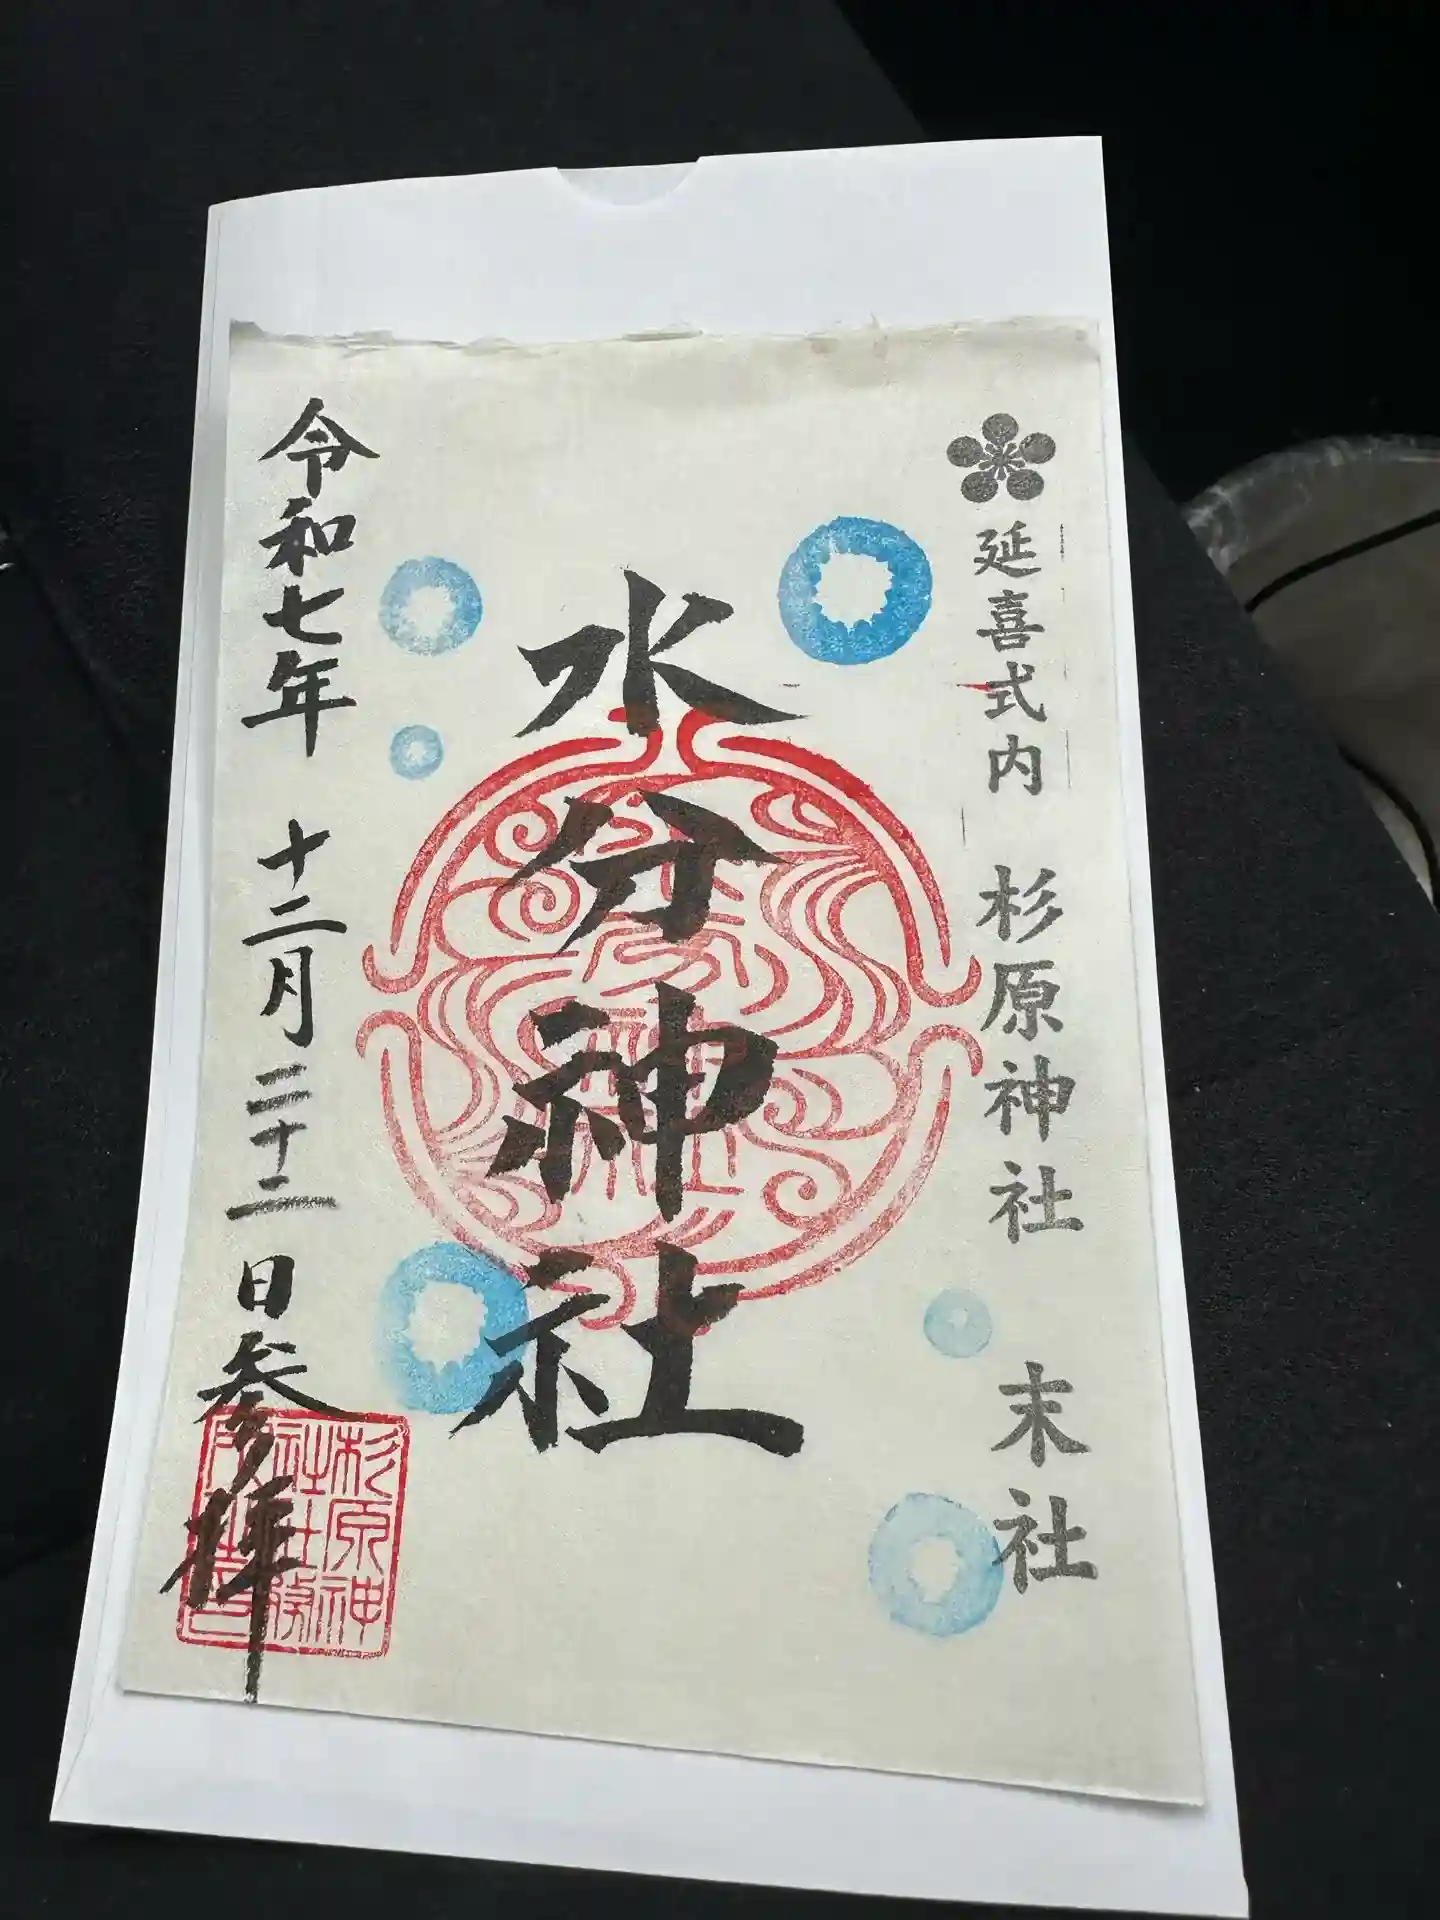 延喜式内 杉原神社 末社
水分神社
令和七年 十二月 二十二日参拝
杉原神
社社務